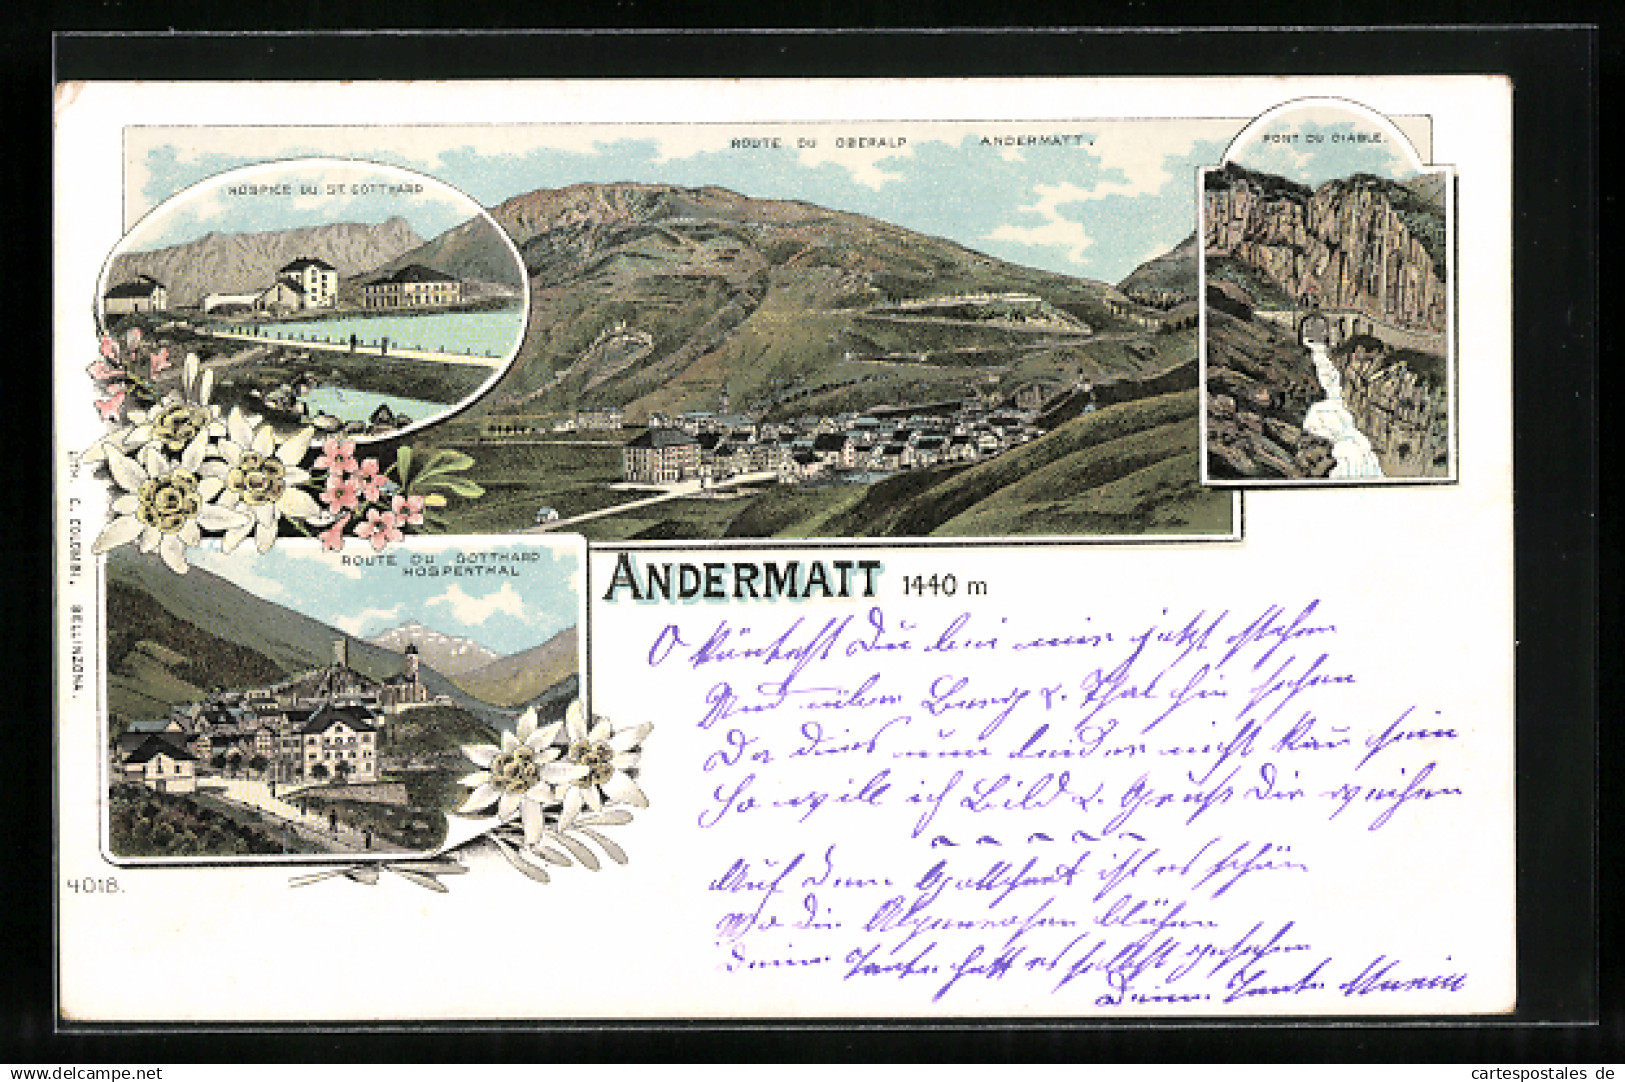 ROUTE DU OBERALP ANDERMATT.
PONT DU DIABLE.
HOSPICE DU ST. GOTTHARD
ROUTE DU GOTTHARD
HOSPENTHAL
LITH. C. COLOMBI, BELLINZONA.
4018.
ANDERMATT 1440 m
O könntest Du bei mir jetzt stehen
Und über Berg & Thal hin sehen
Da dies nun leider nicht kann sein
So will ich Bild & Gruß Dir weihen
Auf dem Gotthart ist es schön
Wo die Alpenrosen blühen
Deine Tante hatt es selbst gesehen
Deine Tante
delcampe.net
cartespostales de